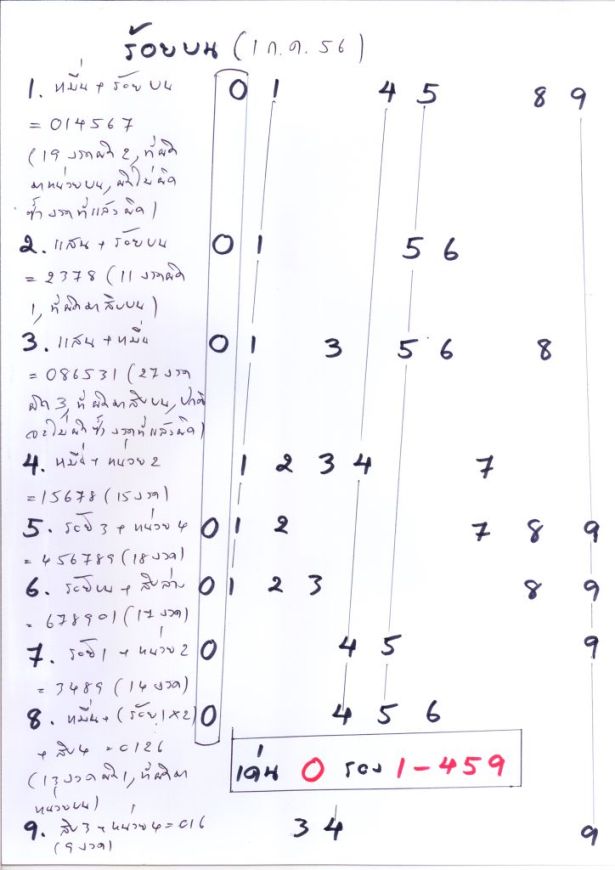 ร้อยบน (1 ก.ค. 56)
1. หมื่น + ร้อยบน 0 1 4 5 8 9
= 014567
(19 งวดผิด 2, ที่ผิด
มาหน่วยบน, ผิดไม่ผิด
ซ้ำ งวดที่แล้วผิด)
2. แสน + ร้อยบน 0 1 5 6
= 2378 (11 งวดผิด
1, ที่ผิดมาสิบบน)
3. แสน + หมื่น 0 1 3 5 6 8
= 086531 (27 งวด
ผิด 3, ที่ผิดมาสิบบน, ปกติ
จะไม่ผิดซ้ำ งวดที่แล้วผิด)
4. หมื่น + หน่วย 2 1 2 3 4 7
= 15678 (15 งวด)
5. ร้อย 3 + หน่วย 4 0 1 2 7 8 9
= 456789 (18 งวด)
6. ร้อยบน + สิบล่าง 0 1 2 3 8 9
= 678901 (17 งวด)
7. ร้อย 1 + หน่วย 2 0 4 5 9
= 3489 (14 งวด)
8. หมื่น + (ร้อย 1 x 2) 0 4 5 6
+ สิบ 4 = 0126
(13 งวด ผิด 1, ที่ผิดมา
หน่วยบน)
เด่น 0 รอง 1-459
9. สิบ 3 + หน่วย 4 = 016 3 4 9
(9 งวด)